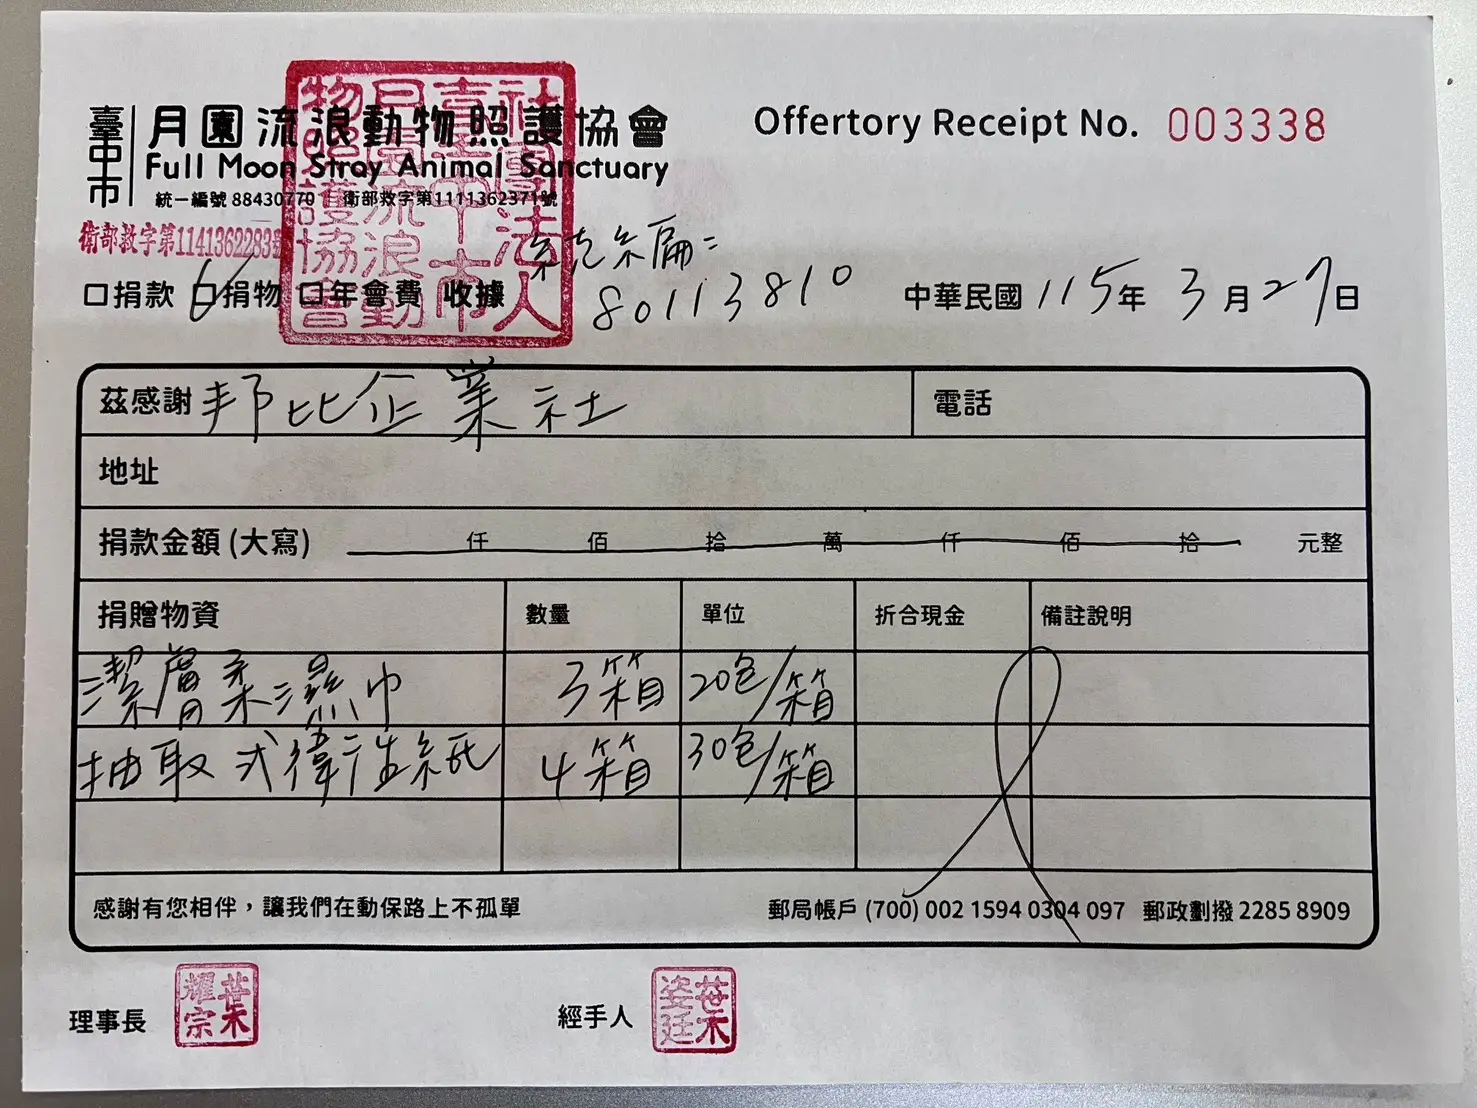 臺中市
月園流浪動物照護協會
Full Moon Stray Animal Sanctuary
統一編號 88430770 衛部救字第1111362371號
衛部救字第1141362283號
社團法人臺中市月園流浪動物照護協會
Offertory Receipt No. 003338
統編:
80113810
口捐款 口捐物 口年會費 收據
中華民國 115年 3月27日
茲感謝 邦比企業社 電話
地址
捐款金額(大寫) 仟 佰 拾 萬 仟 佰 拾 元整
捐贈物資 數量 單位 折合現金 備註說明
潔膚柔濕巾 3箱 20包/箱
抽取式衛生紙 4箱 30包/箱
感謝有您相伴,讓我們在動保路上不孤單 郵局帳戶 (700) 002 1594 0304 097 郵政劃撥 2285 8909
理事長 葉耀宗 經手人 葉姿廷